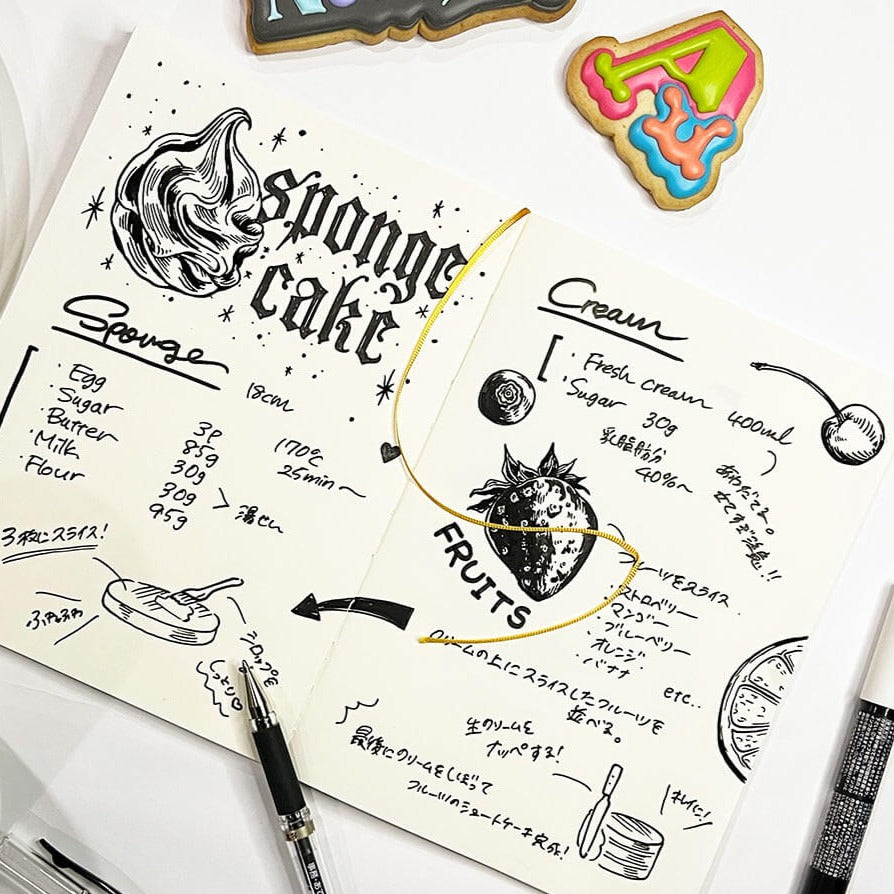 A
sponge
cake
Sponge
18cm
・Egg 3P
・Sugar 85g
・Butter 30g
・Milk 30g
・Flour 95g
湯せん
170℃
25min〜
3枚にスライス!
ふわふわ
シロップを
しっとり♡
Cream
・Fresh cream 400ml
・Sugar 30g
乳脂肪分
40%〜
あわだてる。
立てすぎ注意!!
FRUITS
フルーツをスライス
・ストロベリー
・マンゴー
・ブルーベリー
・オレンジ
・バナナ
etc..
クリームの上にスライスしたフルーツを
並べる。
生クリームを
ナッペする!
キレイに!
最後にクリームをしぼって
フルーツのショートケーキ完成!